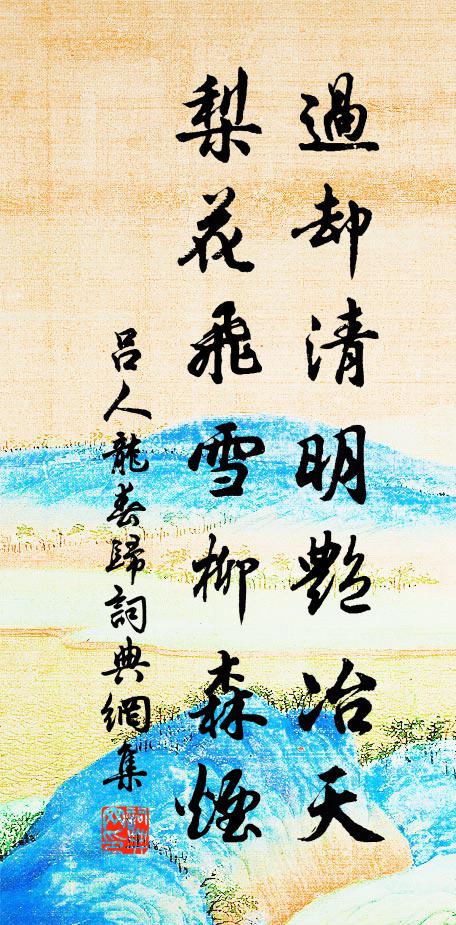 過却清明艷冶天
梨花飛雪柳森煙
呂人龍春歸詞典網集